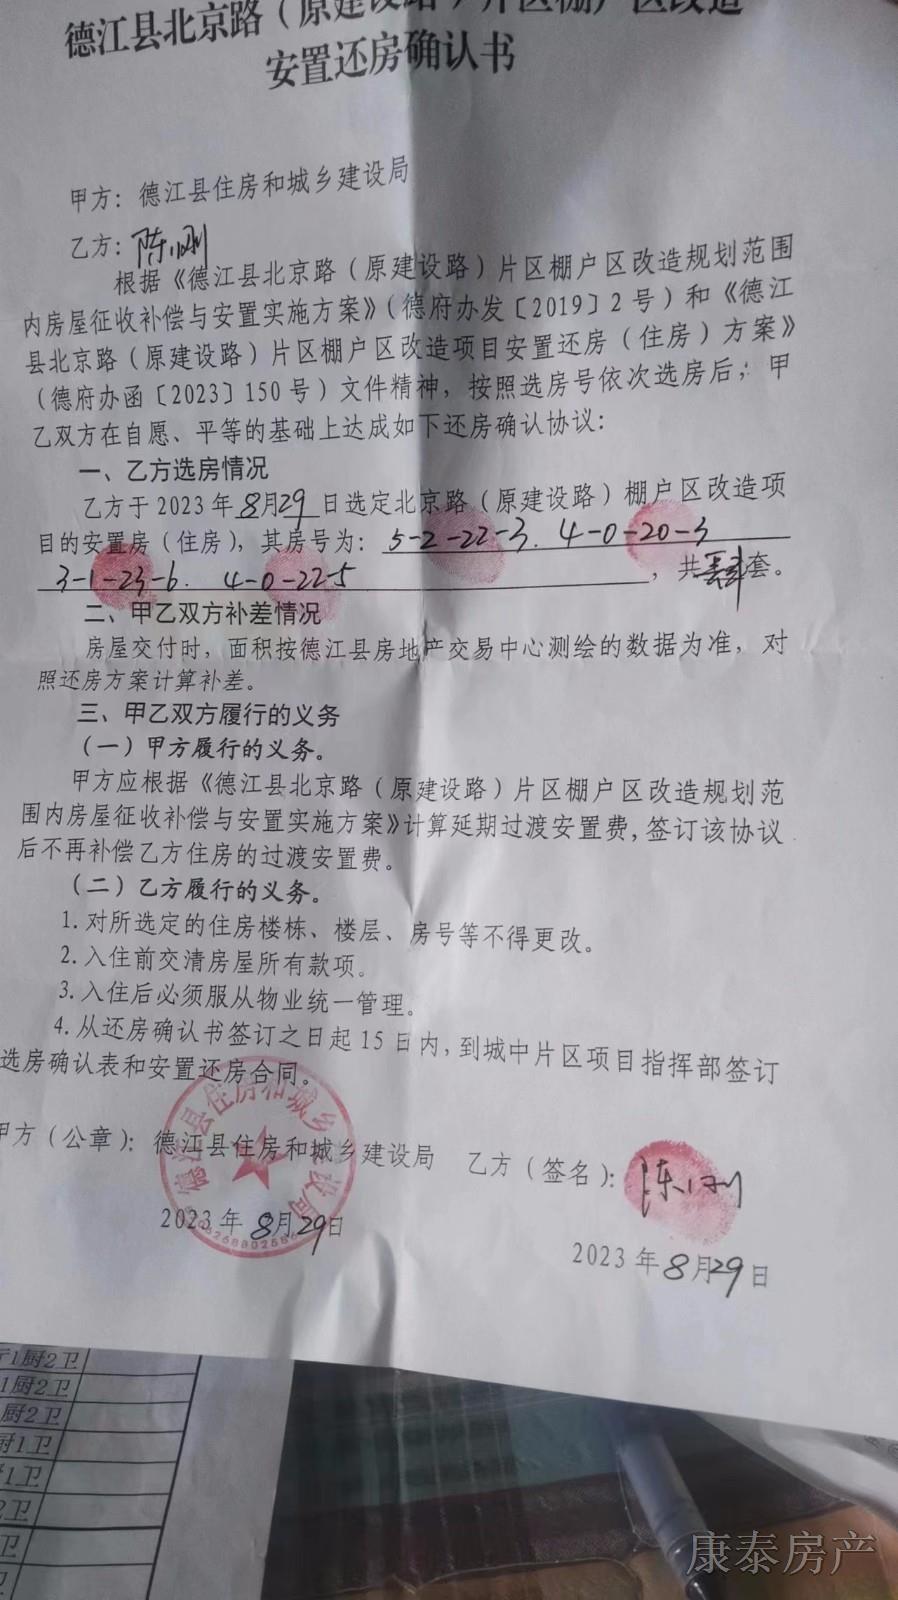 德江县北京路（原建设路）片区棚户区改造
安置还房确认书
甲方：德江县住房和城乡建设局
乙方：陈刚
根据《德江县北京路（原建设路）片区棚户区改造规划范围
内房屋征收补偿与安置实施方案》（德府办发〔2019〕2号）和《德江
县北京路（原建设路）片区棚户区改造项目安置还房（住房）方案》
（德府办函〔2023〕150号）文件精神，按照选房号依次选房后，甲
乙双方在自愿、平等的基础上达成如下还房确认协议：
一、乙方选房情况
乙方于2023年8月29日选定北京路（原建设路）棚户区改造项
目的安置房（住房），其房号为：5-2-22-3. 4-0-20-3
3-1-23-6. 4-0-22-5，共肆套。
二、甲乙双方补差情况
房屋交付时，面积按德江县房地产交易中心测绘的数据为准，对
照还房方案计算补差。
三、甲乙双方履行的义务
（一）甲方履行的义务。
甲方应根据《德江县北京路（原建设路）片区棚户区改造规划范
围内房屋征收补偿与安置实施方案》计算延期过渡安置费，签订该协议
后不再补偿乙方住房的过渡安置费。
（二）乙方履行的义务。
1.对所选定的住房楼栋、楼层、房号等不得更改。
2.入住前交清房屋所有款项。
3.入住后必须服从物业统一管理。
4.从还房确认书签订之日起15日内，到城中片区项目指挥部签订
选房确认表和安置还房合同。
甲方（公章）：德江县住房和城乡建设局 乙方（签名）：陈刚
德江县住房和城乡建设局
2023年8月29日
2023年8月29日
厅1厨2卫
1厨2卫
厨2卫
厨1卫
1卫
2卫
卫
卫
康泰房产